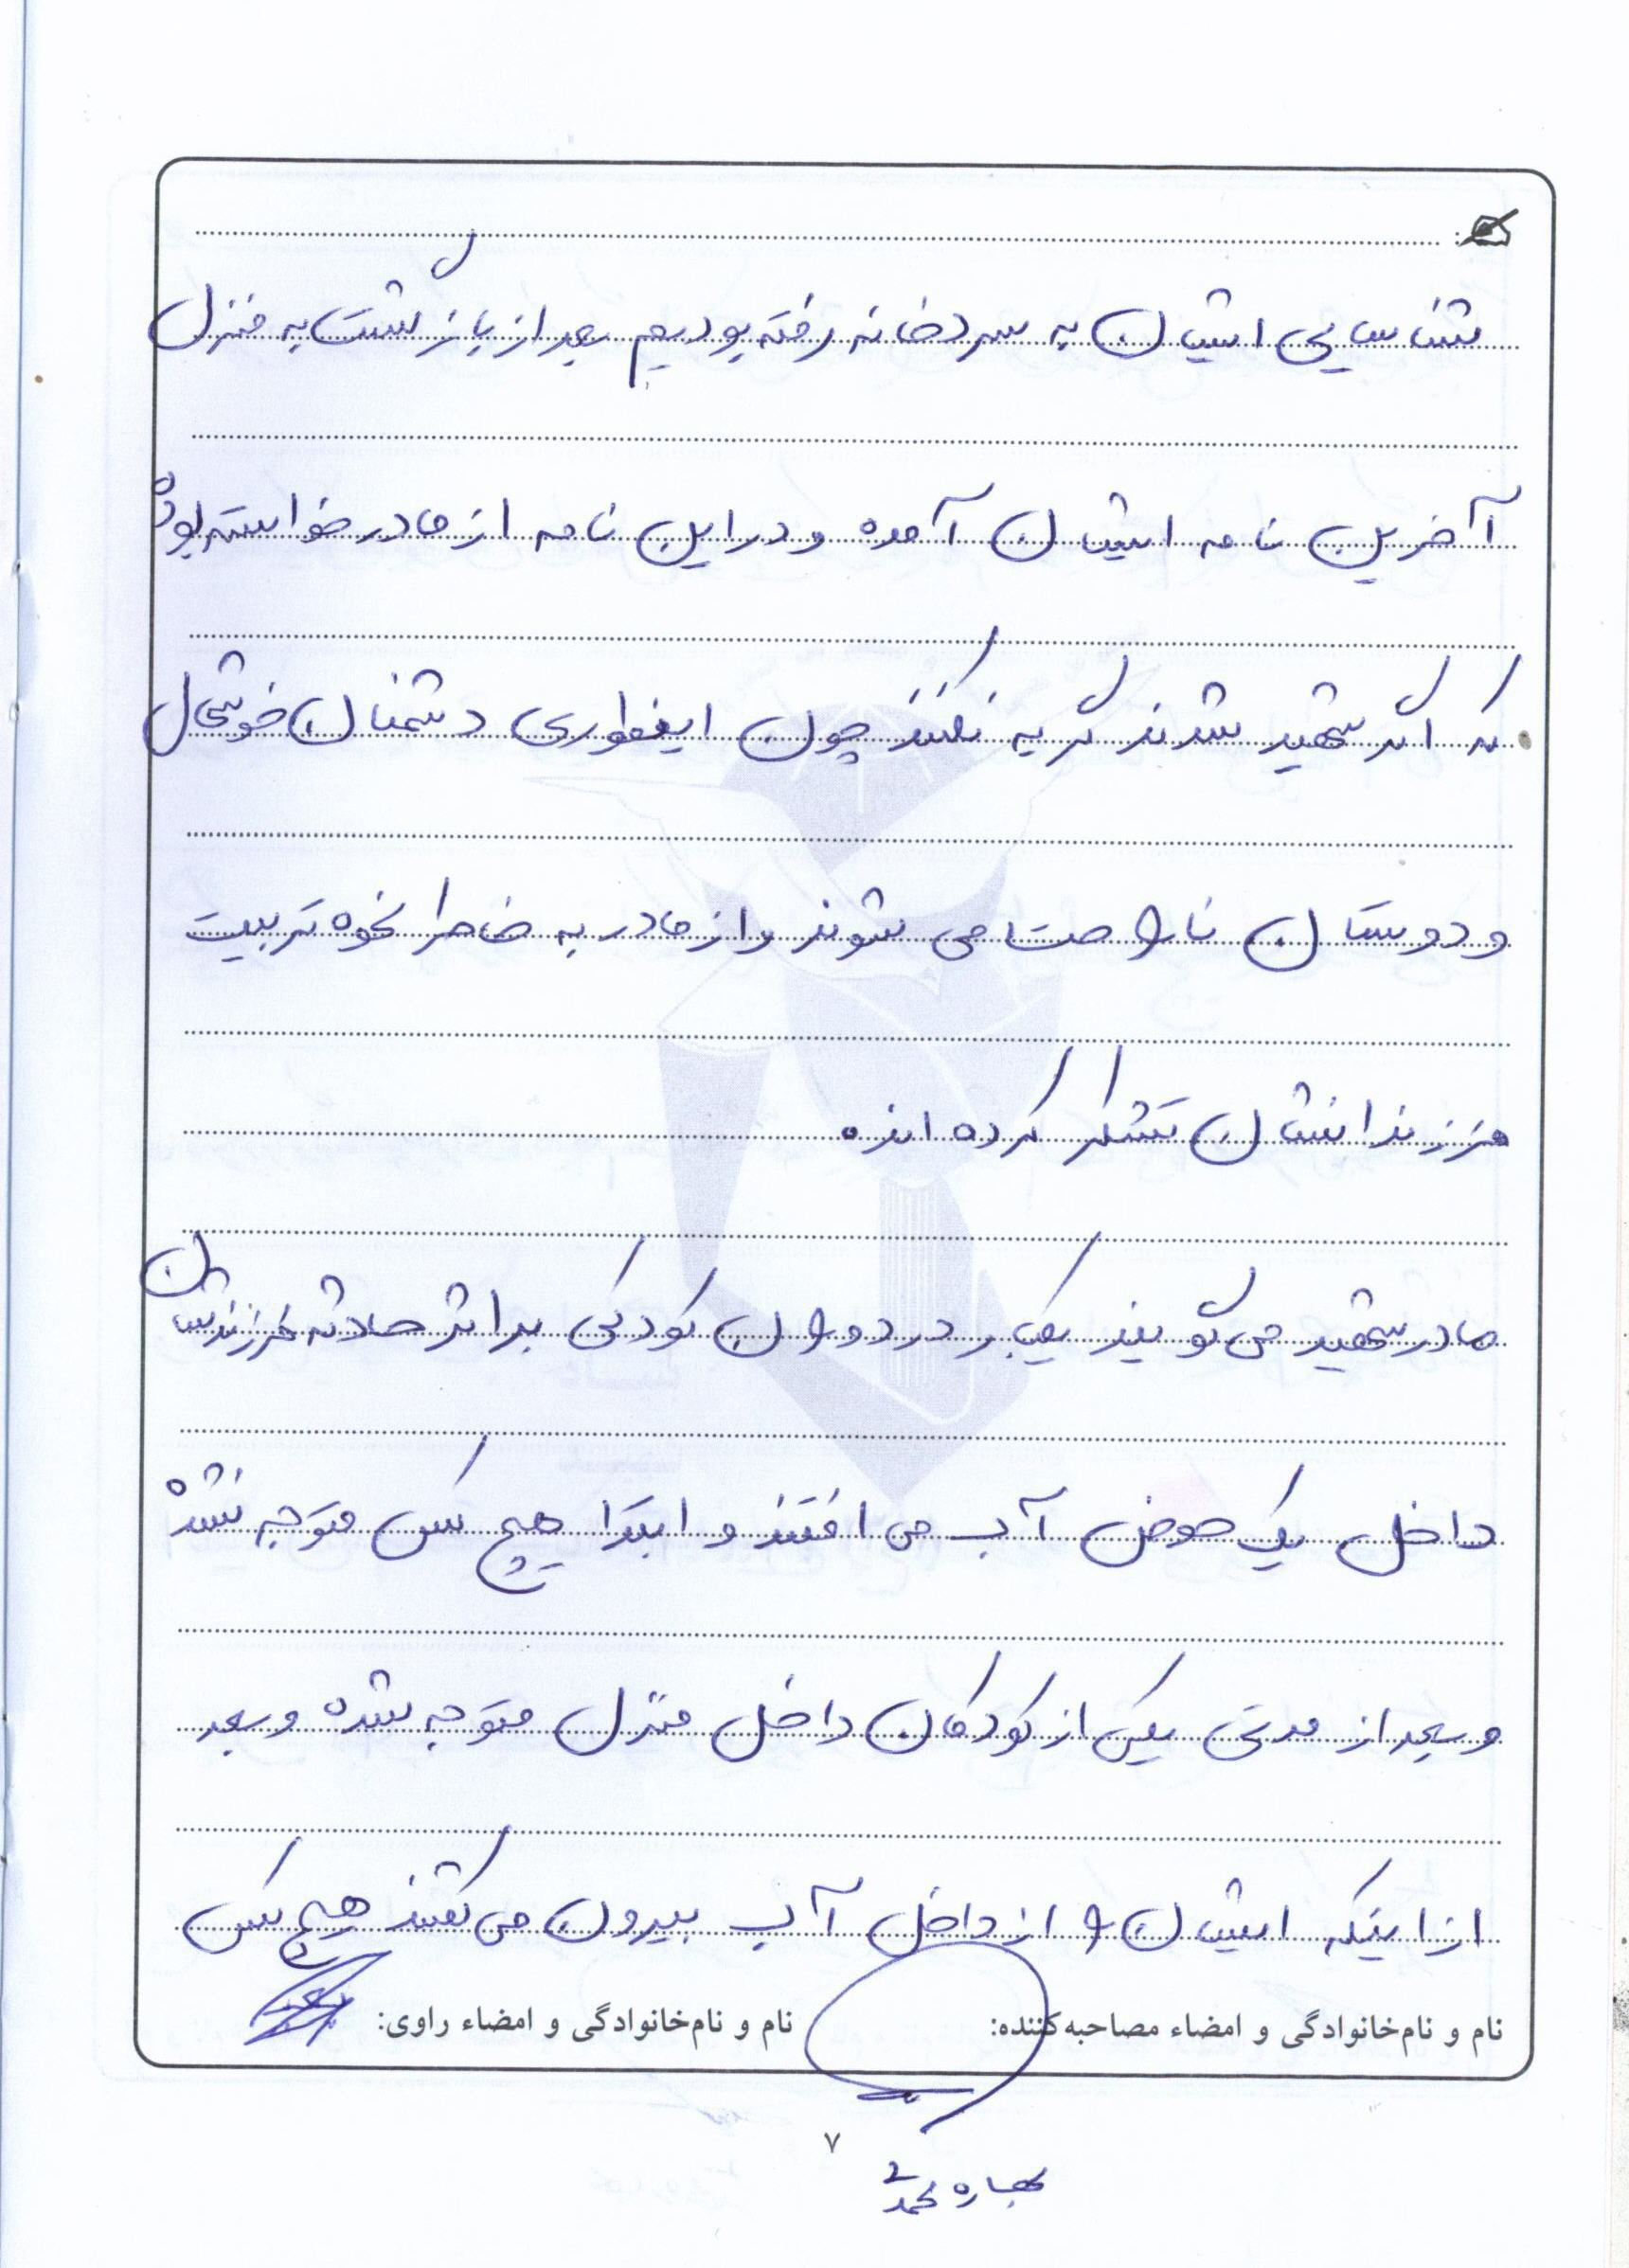 شناسایی ایشان به سردخانه رفته بودیم بعد از بازگشت به منزل
آخرین نامه ایشان آمده و در این نامه از مادر خواسته بوده
که اگر شهید شدند گریه نکنند چون اینطوری دشمنان خوشحال
و دوستان ناراحت می شوند و از مادر به خاطر نحوه تربیت
فرزندانشان تشکر کرده اند.
مادر شهید می گویند یکبار در دوران کودکی براثر حادثه فرزندشان
داخل یک حوض آب می افتند و ابتدا هیچ کس متوجه نشده
و بعد از مدتی یکی از کودکان داخل منزل متوجه شده و بعد
از اینکه ایشان را از داخل آب بیرون می کشند هیچ کس
نام و نام‌خانوادگی و امضاء مصاحبه‌کننده: نام و نام‌خانوادگی و امضاء راوی:
۷
بهاره محمدی